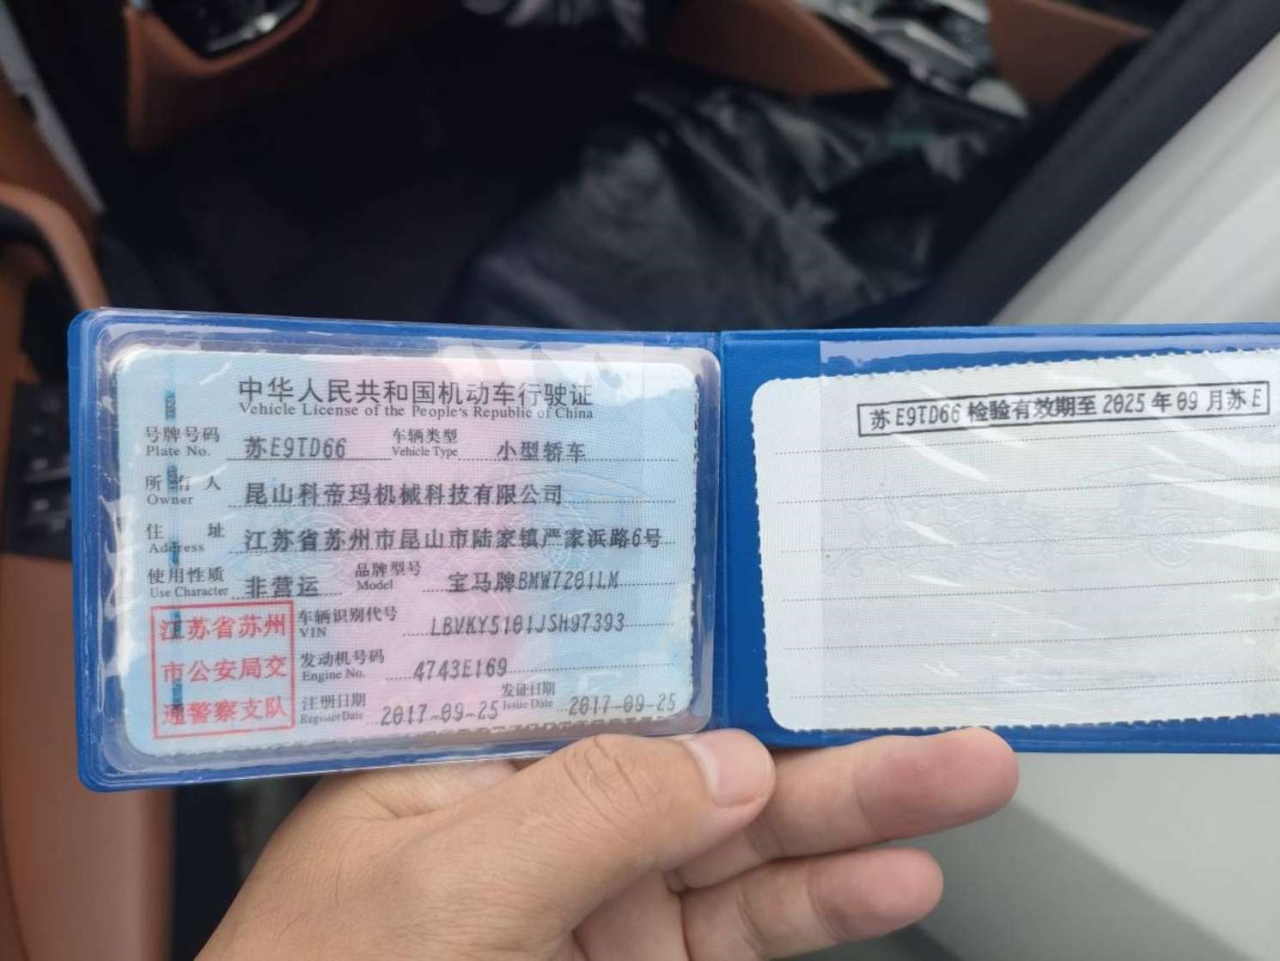 中华人民共和国机动车行驶证
Vehicle License of the People's Republic of China
号牌号码 苏E9TD66 车辆类型 小型轿车
Plate No. Vehicle Type
所有人 昆山科帝玛机械科技有限公司
Owner
住址 江苏省苏州市昆山市陆家镇严家浜路6号
Address
使用性质 非营运 品牌型号 宝马牌BMW7201LM
Use Character Model
江苏省苏州
市公安局交
通警察支队
车辆识别代号 LBVKY5101JSH97393
VIN
发动机号码 4743E169
Engine No.
注册日期 2017-09-25 发证日期 2017-09-25
Register Date Issue Date
苏E9TD66 检验有效期至 2025 年 09 月苏E